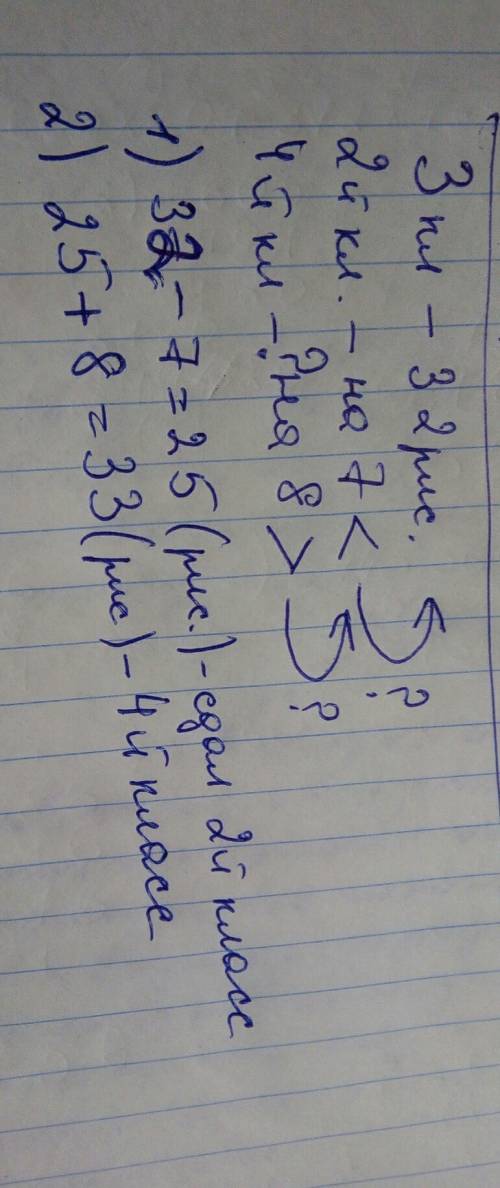 3 кл - 32 рис.
2й кл. - на 7 < ?
4й кл - ? на 8 > ?
1) 32 - 7 = 25 (рис.) - сдал 2й класс
2) 25 + 8 = 33 (рис) - 4й класс